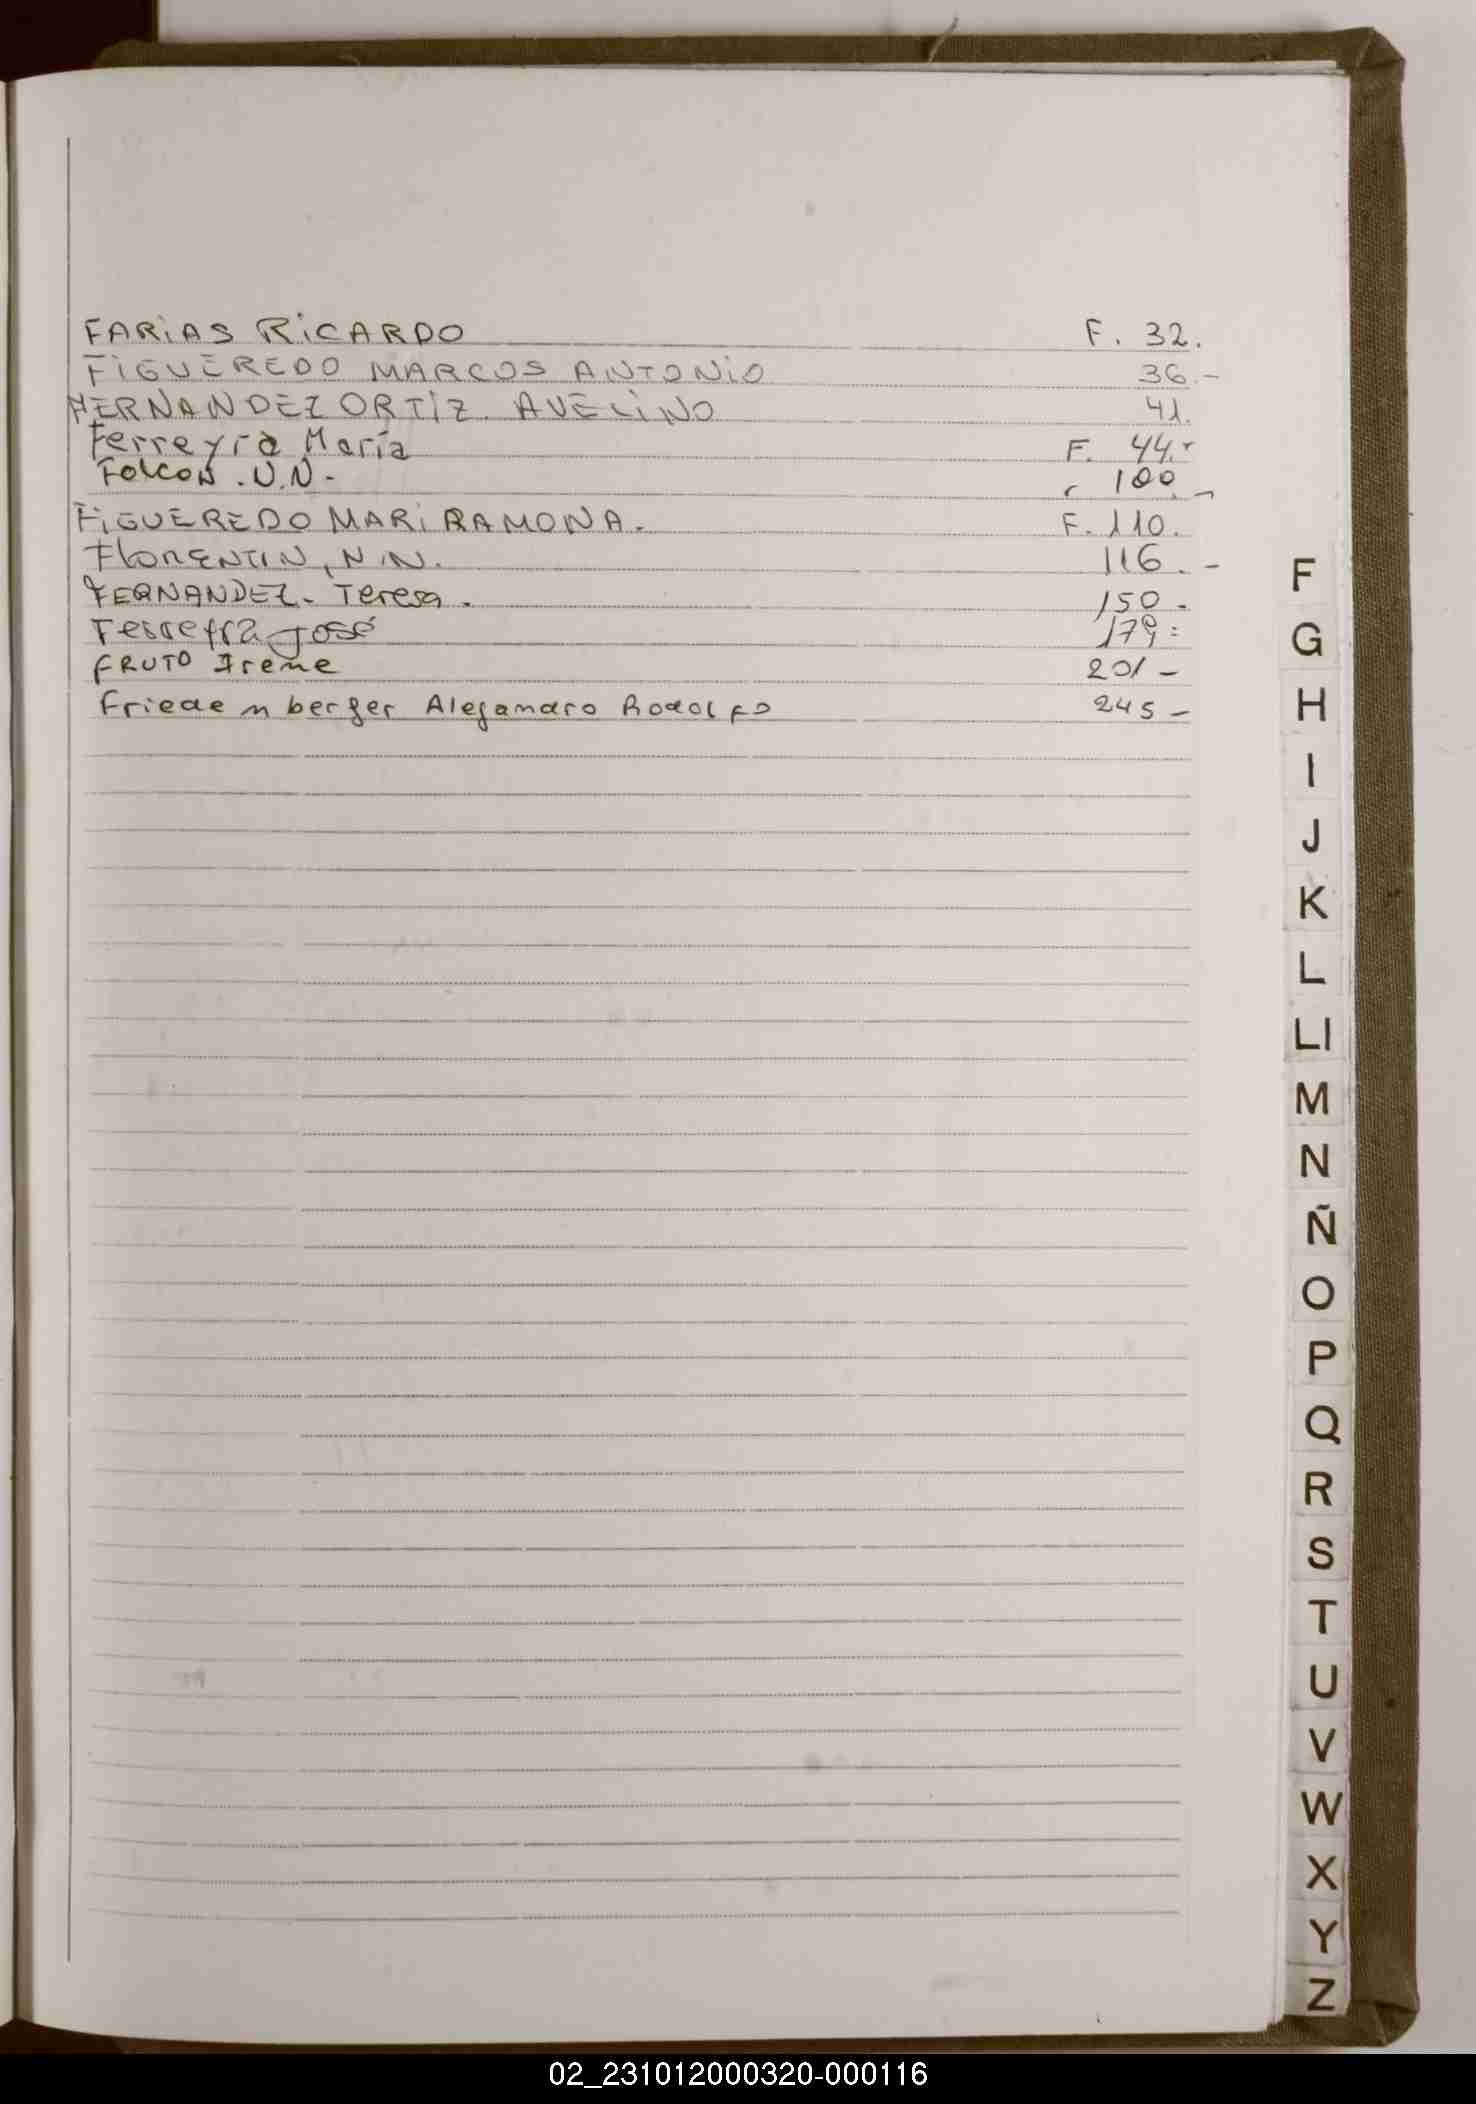 FARIAS RICARDO F. 32.
FIGUEREDO MARCOS ANTONIO 36.-
FERNANDEZ ORTIZ. AVELINO 41.
Ferreyra María F. 44.-
Falcon. N.N.- 100.-
FIGUEREDO MARI RAMONA.- F. 110.
FlORENTIN, N.N. 116.-
FERNANDEZ- Teresa. 150.-
Ferreyra José 179=
FRUTO Irene 201-
Friedenberger Alejandro Rodolfo 245-
F
G
H
I
J
K
L
Ll
M
N
Ñ
O
P
Q
R
S
T
U
V
W
X
Y
Z
02_231012000320-000116